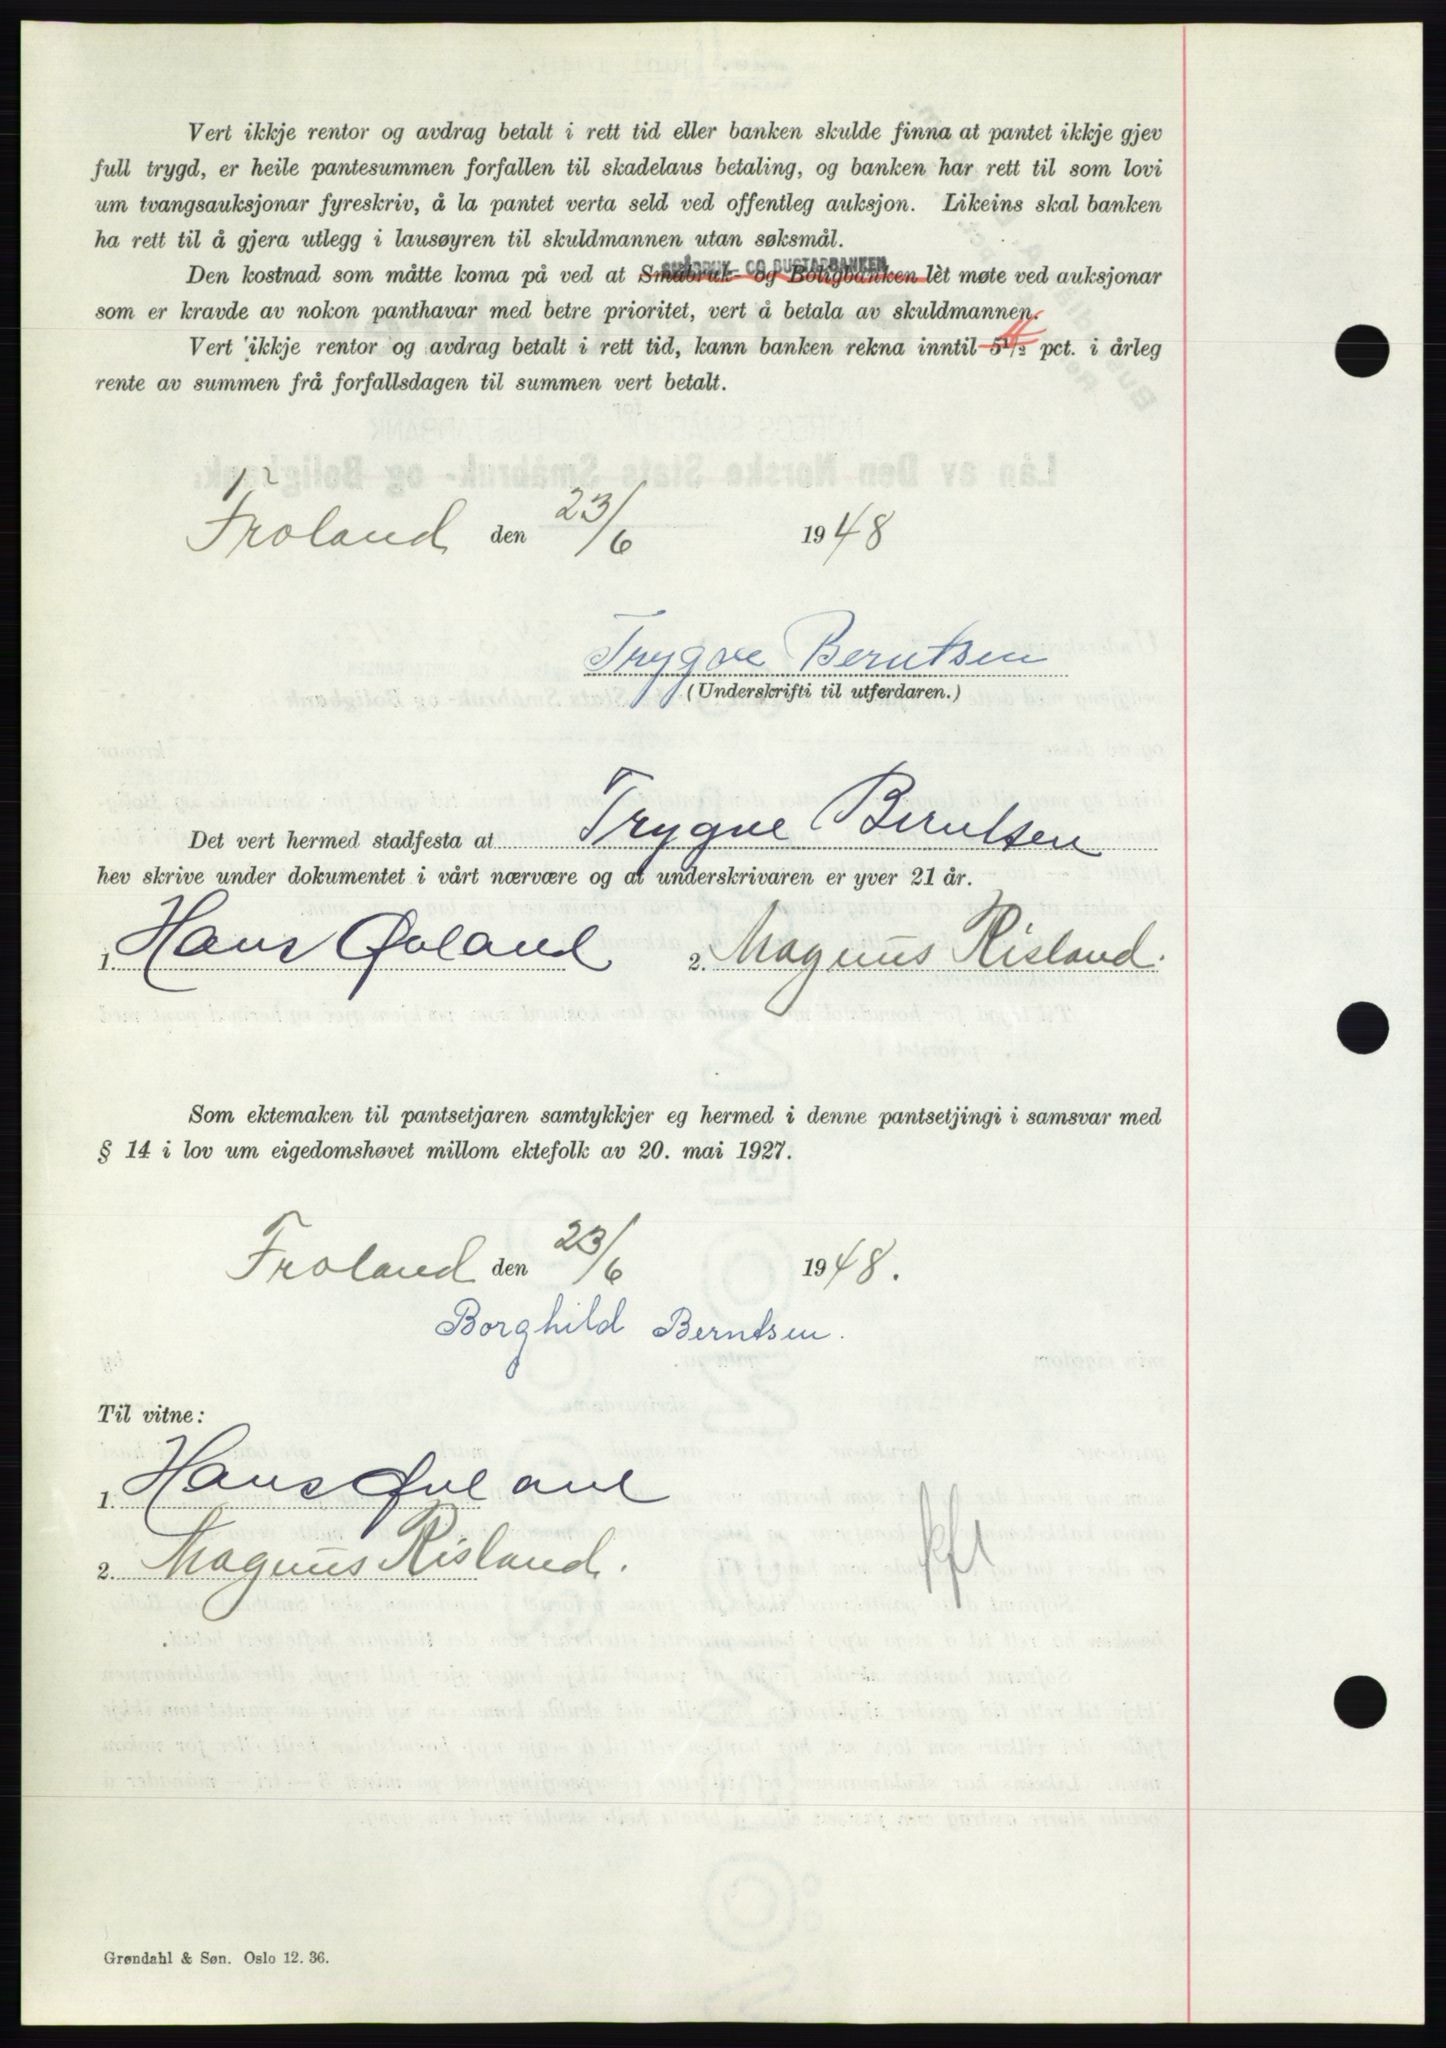 Vert ikkje rentor og avdrag betalt i rett tid eller banken skulde finna at pantet ikkje gjev
full trygd, er heile pantesummen forfallen til skadelaus betaling, og banken har rett til som lovi
um tvangsauksjonar fyreskriv, å la pantet verta seld ved offentleg auksjon. Likeins skal banken
ha rett til å gjera utlegg i lausøyren til skuldmannen utan søksmål.
SMÅBRUK- OG BUSTADBANKEN
Den kostnad som måtte koma på ved at Småbruk- og Boligbanken lèt møte ved auksjonar
som er kravde av nokon panthavar med betre prioritet, vert å betala av skuldmannen.
Vert ikkje rentor og avdrag betalt i rett tid, kann banken rekna inntil 5 1/2 4 pct. i årleg
rente av summen frå forfallsdagen til summen vert betalt.
Froland den 23/6 1948
Trygve Berntsen
(Underskrifti til utferdaren.)
Det vert hermed stadfesta at Trygve Berntsen
hev skrive under dokumentet i vårt nærvære og at underskrivaren er yver 21 år.
1. Hans Øvland 2. Magnus Risland.
Som ektemaken til pantsetjaren samtykkjer eg hermed i denne pantsetjingi i samsvar med
§ 14 i lov um eigedomshøvet millom ektefolk av 20. mai 1927.
Froland den 23/6 1948.
Borghild Berntsen.
Til vitne:
1. Hans Øvland
2. Magnus Risland.
Grøndahl & Søn. Oslo 12. 36.